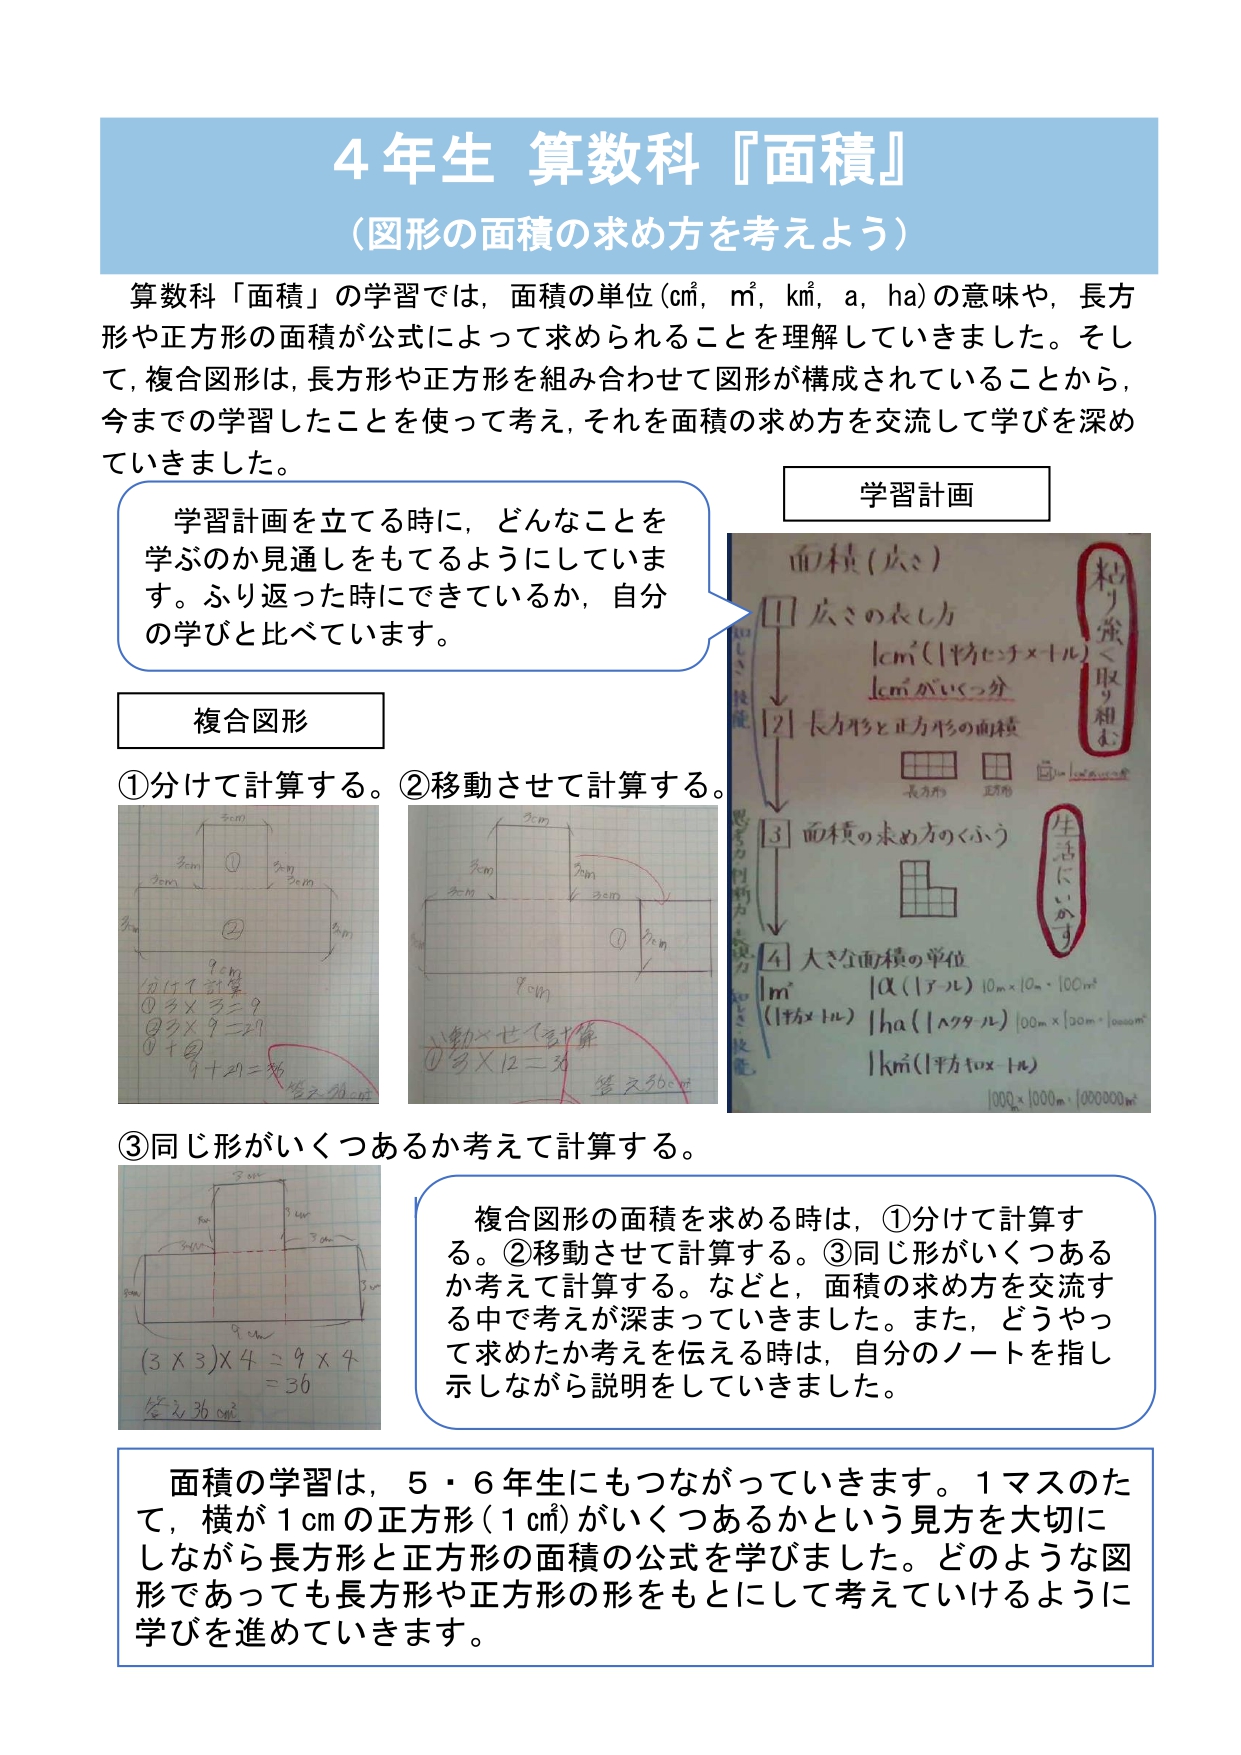 ４年生 算数科『面積』
（図形の面積の求め方を考えよう）
算数科「面積」の学習では，面積の単位(㎠，㎡，㎢，a，ha)の意味や，長方
形や正方形の面積が公式によって求められることを理解していきました。そし
て,複合図形は,長方形や正方形を組み合わせて図形が構成されていることから,
今までの学習したことを使って考え,それを面積の求め方を交流して学びを深め
ていきました。
学習計画
学習計画を立てる時に，どんなことを
学ぶのか見通しをもてるようにしていま
す。ふり返った時にできているか，自分
の学びと比べています。
面積(広さ)
粘り強く取り組む
1 広さの表し方
1cm²(1平方センチメートル)
1cm²がいくつ分
2 長方形と正方形の面積
長方形 正方形
3 面積の求め方のくふう
生活にいかす
4 大きな面積の単位
1m² 1a(1アール) 10m×10m=100m²
(1平方メートル) 1ha(1ヘクタール) 100m×100m=10000m²
1km²(1平方キロメートル)
1000m×1000m=1000000m²
複合図形
①分けて計算する。 ②移動させて計算する。
3cm
3cm ① 3cm
3cm 3cm
3cm ② 3cm
9cm
分けて計算
①3×3=9
②3×9=27
①+②
9+27=36
答え36cm²
3cm
3cm 3cm
3cm 3cm
① 3cm
9cm
①3×12=36
答え36cm²
③同じ形がいくつあるか考えて計算する。
3cm
3cm
3cm 3cm
9cm
(3×3)×4=9×4
=36
答え36cm²
複合図形の面積を求める時は，①分けて計算す
る。②移動させて計算する。③同じ形がいくつある
か考えて計算する。などと，面積の求め方を交流す
る中で考えが深まっていきました。また，どうやっ
て求めたか考えを伝える時は，自分のノートを指し
示しながら説明をしていきました。
面積の学習は，５・６年生にもつながっていきます。１マスのた
て，横が１cmの正方形(１㎠)がいくつあるかという見方を大切に
しながら長方形と正方形の面積の公式を学びました。どのような図
形であっても長方形や正方形の形をもとにして考えていけるように
学びを進めていきます。